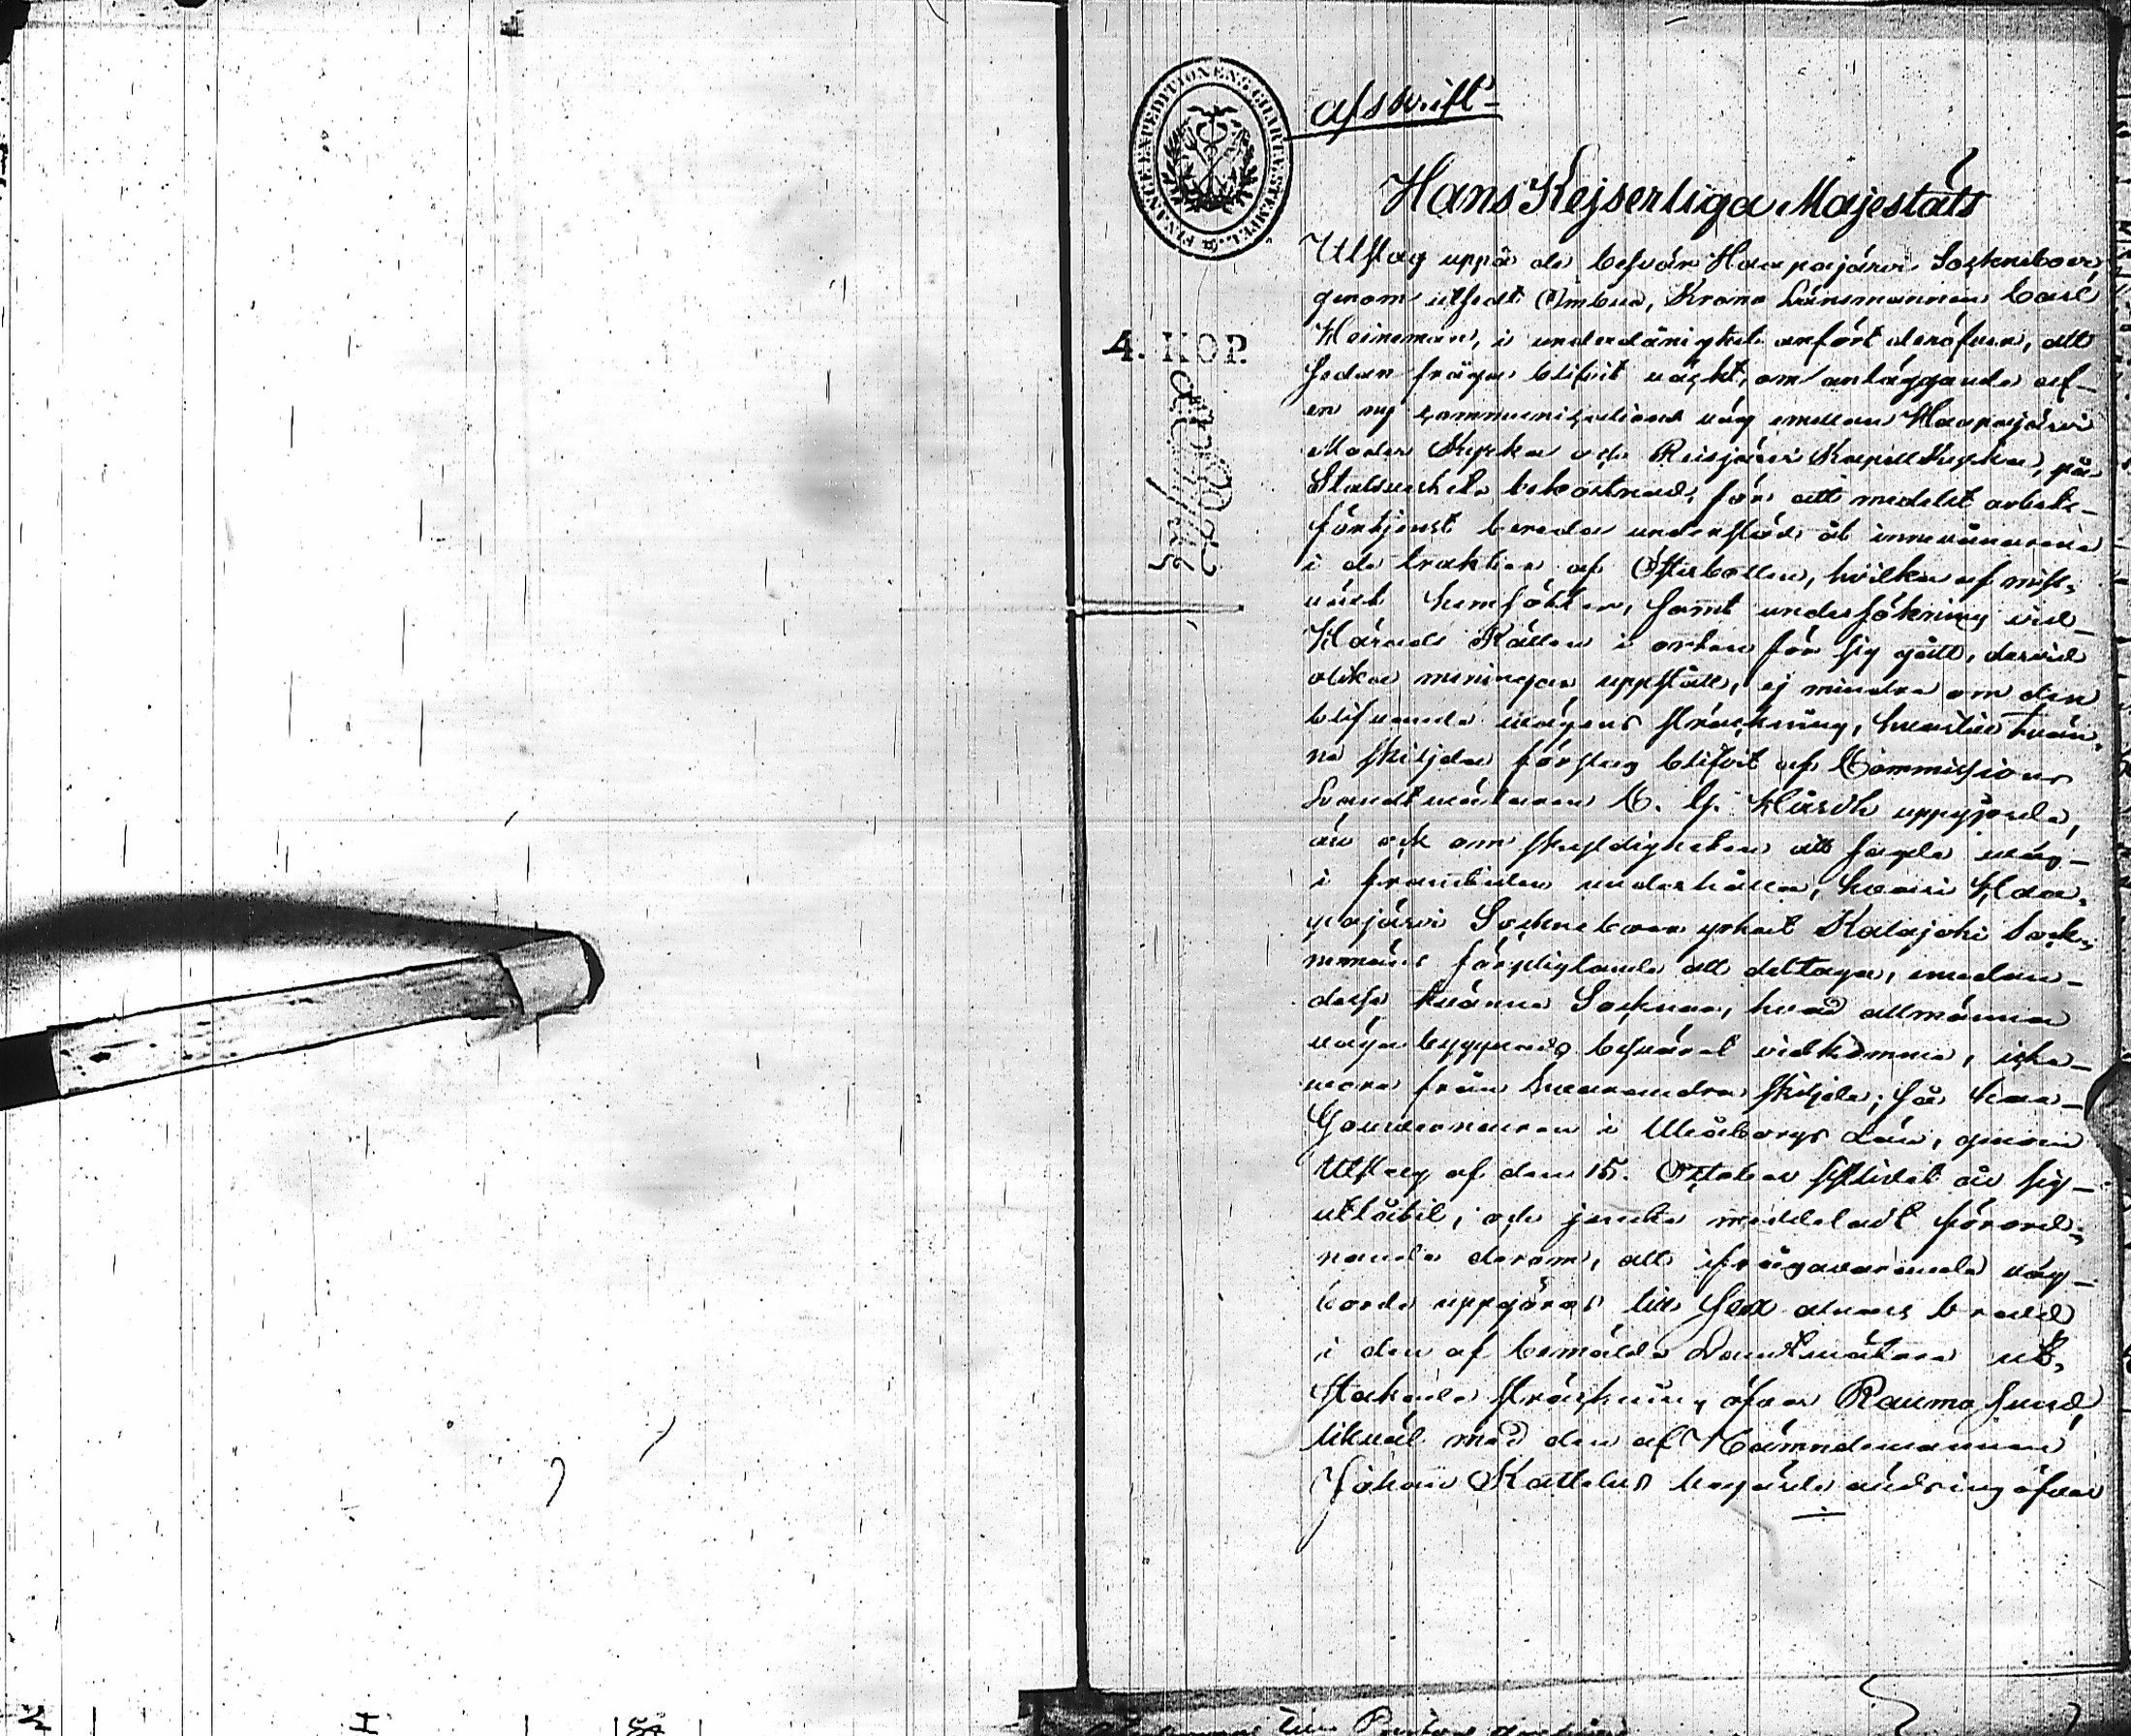 FINANCE-EXPEDITIONENS CHARTÆ STEMPEL.
afskrift
Hans Kejserliga Majestäts
4. KOP.
Utslag uppå de besvär Haapajärvi Sockneboer,
genom utsedt Ombud, Krono Länsmannen Carl
Heineman, i underdånighet anfört deröfver, att
sedan fråga blifvit väckt, om anläggande af
en ny communications väg emellan Haapajärvi
Moder Kyrka och Reisjärvi Kapell Kyrka, på
Statsverkets bekostnad, för att medelst arbets-
förtjenst bereda understöd åt innevånarene
i de trakter af Österbotten, hvilka af miss-
växt hemsökter, samt undersökning vid
Härads Rätten i orten för sig gått, dervid
olika meningar uppstått, ej mindre om den
blifvande vägens sträckning, hvartill tvän-
ne skiljda förslag blifvit af Commissions
Landtmätaren C. G. uppgjorde,
än ock om skyldigheten att sagde väg
i framtiden underhålla, hvari Haa-
pajärvi Sockneboer yrkat Kalajoki Sock-
nemäns förpligtande att deltaga, emedan
desse tvänne Socknar, hvad allmänna
vägabyggnads besväret vidkomme, icke
vore från hvarandra skiljde; så har
Gouverneuren i Uleåborgs Län, genom
Utslag af den 15. October sistlidet år sig
utlåtit, och jemte meddeladt förord-
nande derom, att ifrågavarande väg
borde uppgöras till sex alnars bredd
i den af bemälde Landtmätare ut-
stakade sträckning öfver Rauma sund
likväl med den af Nämndemannen
Johan Kattelus begärde ändring öfver